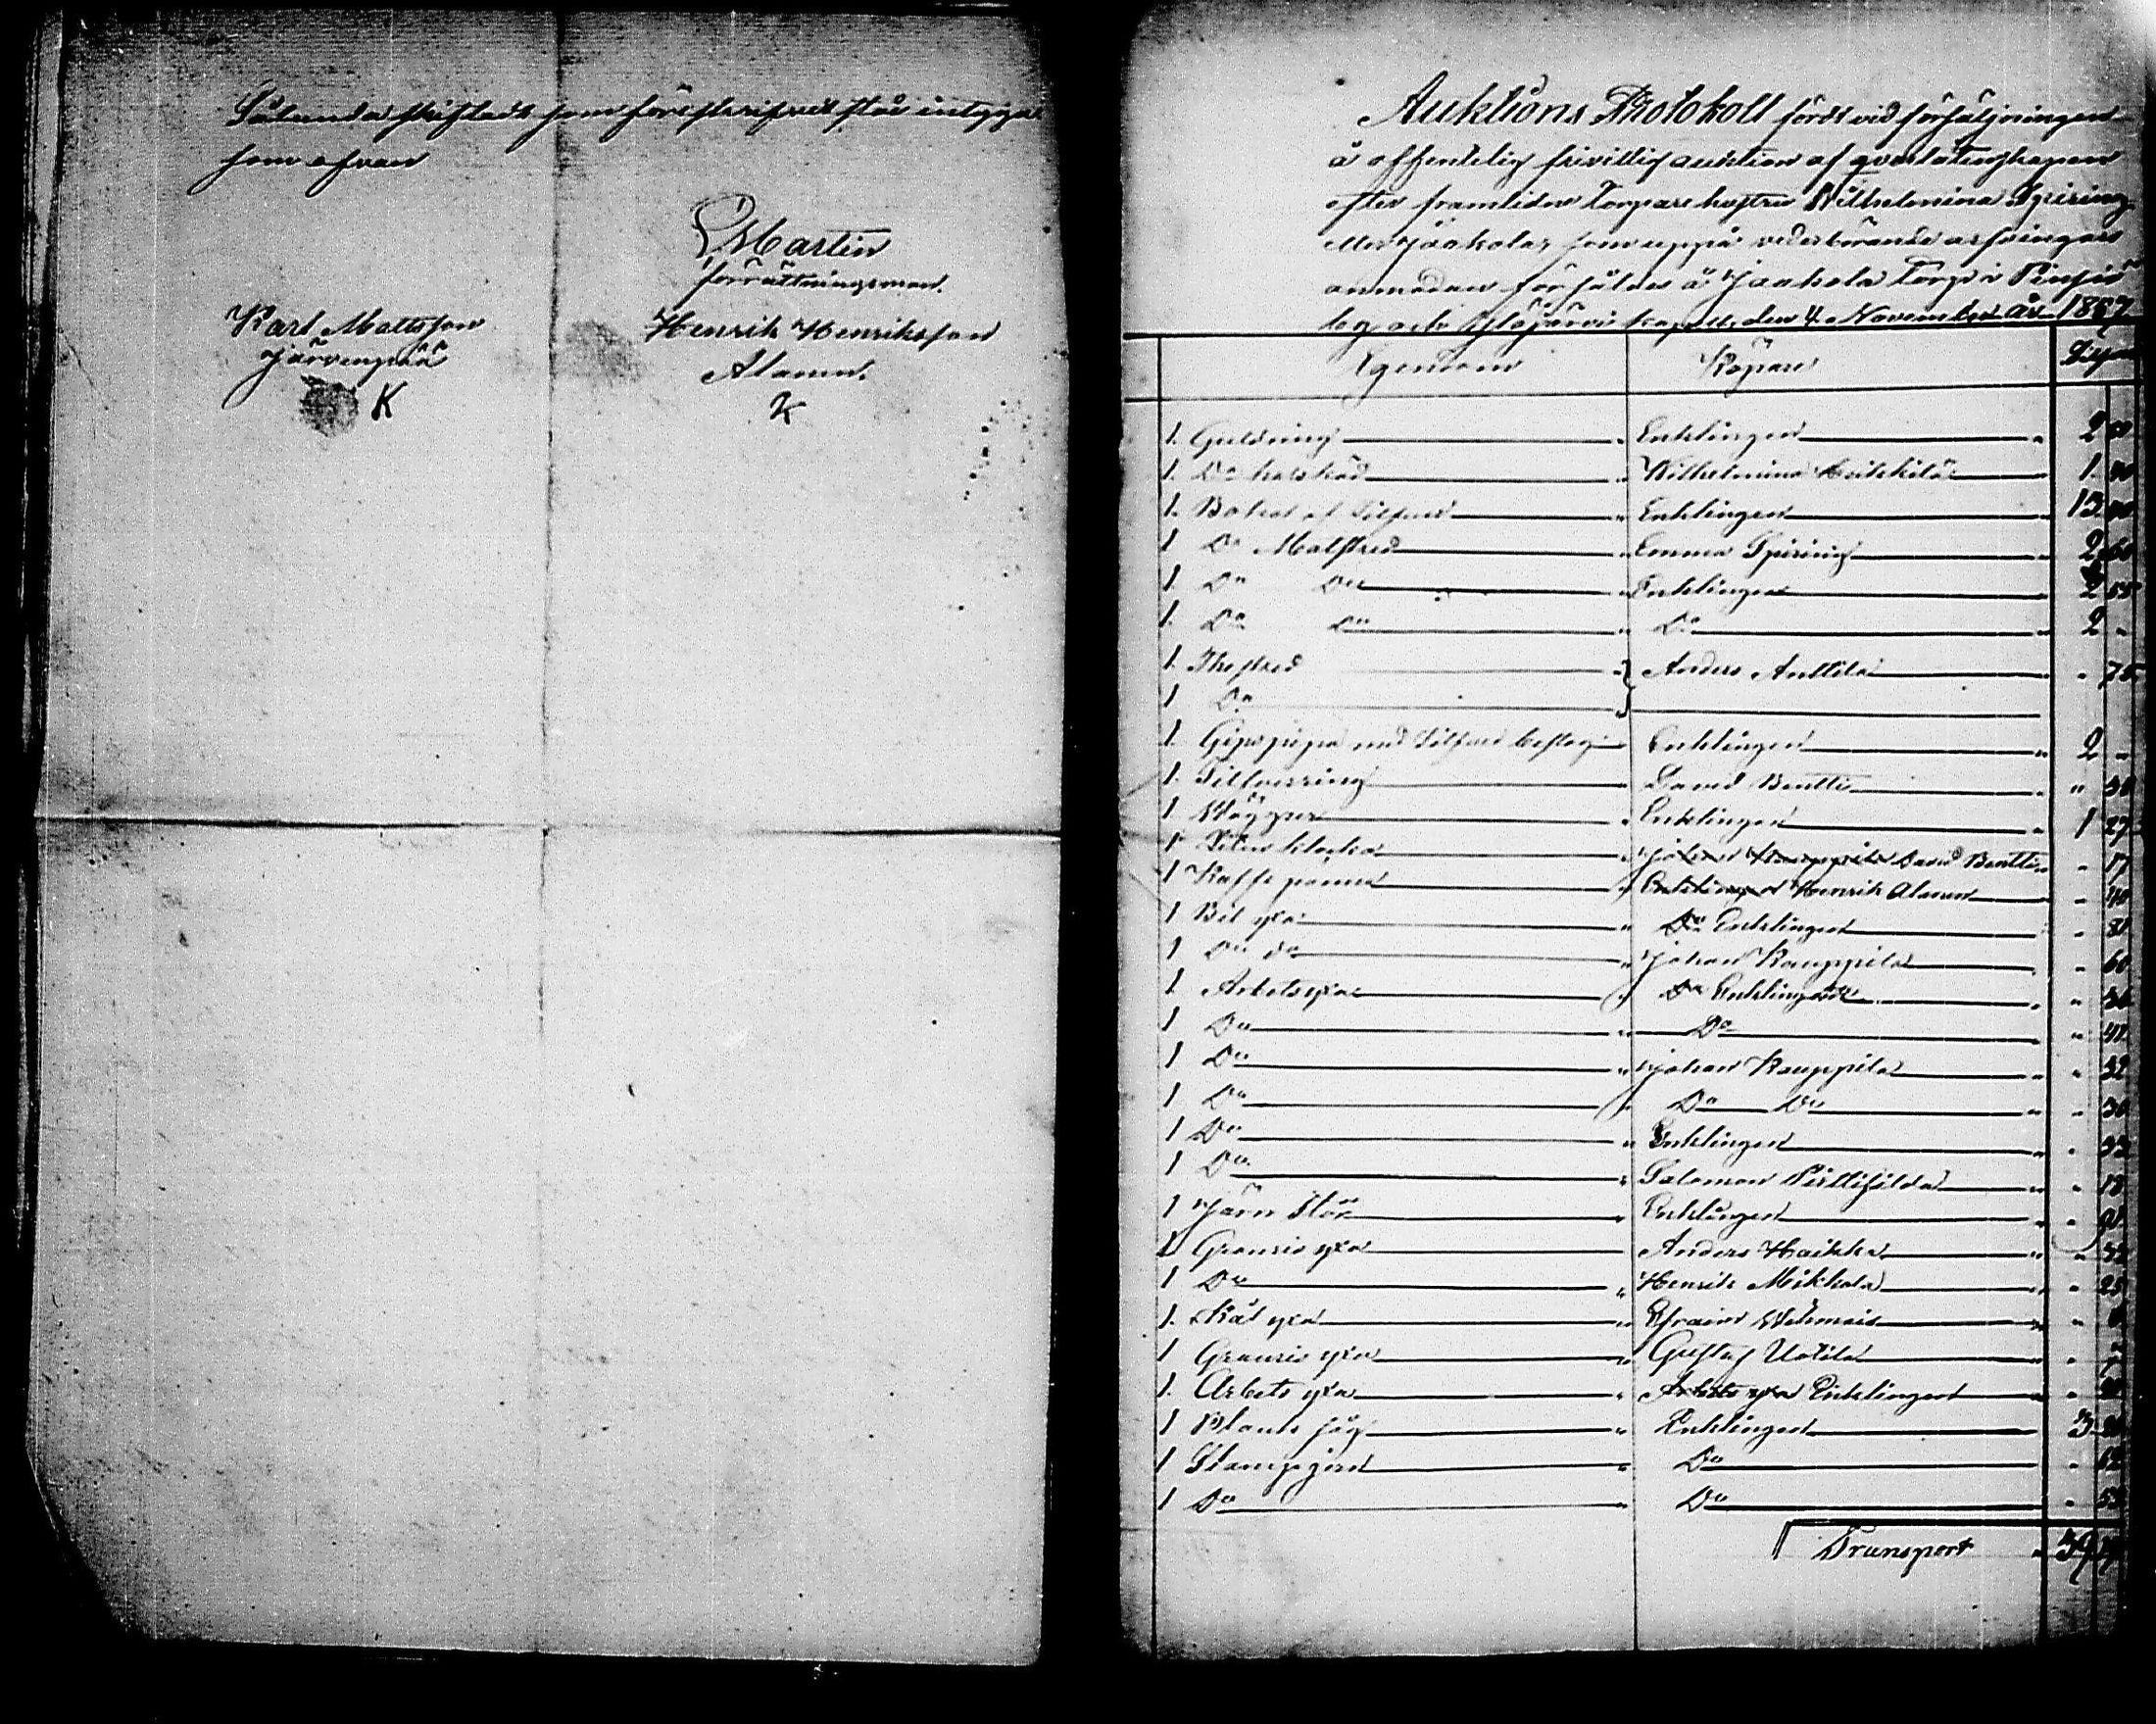 Sålunda skiftadt som föreskrifvet står intyga
som ofvan
Martin
förrättningsman.
Karl Mattsson
Järvenpää
K
Henrik Henriksson
Alanen.
K
Auktions Protokoll fördt vid försäljningen
å offentelig frivillig auktion af qvarlåtenskapen
efter framlidne Torpare hustrun Wilhelmina Spiring
eller Jaakola, som uppå vederbörande arfvingars
anmodan försåldes å Jaakola Torp i Pinsiö
by och Ylöjärvi kapell, den 4 November år 1887
Egendom Köpare
1. Guldring Enklingen 2
1. Do halskäd Wilhelmina Heikkilä 1
1. Bokal af Silfver Enklingen 13
1 Do Matsked Emma Spiring 2 60
1. Do Do Enklingen 2 55
1. Do Do Do 2 "
1. Thesked Anders Anttila " 75
1 Do
1. Gipspipa med Silfver beslag Enklingen 2 "
1. Silfverring David Bentti " 50
1 Väggur Enklingen 1 27
1 Liten klocka Johan Kauppila David Bentti " 17
1 Kaffe panna Enklingen Henrik Alanen " 40
1 Bil yxa Do Enklingen "
1 Do do Johan Kauppila " 60
1. Arbetsyxa Do Enklingen "
1 Do Do "
1 Do Johan Kauppila " 32
1 Do Do Do " 30
1 Do Enklingen "
1 Do Salomon "
1 Järn Stör Enklingen "
1. Granris yxa Anders Haikka "
1 Do Henrik Mikkola " 25
1. Efraim "
1 Granris yxa Gustaf Uotila "
1. Arbets yxa Arbets yxa Enklingen "
1 Plank såg Enklingen 3
1 Stampjern Do "
1 Do Do "
Transport 39